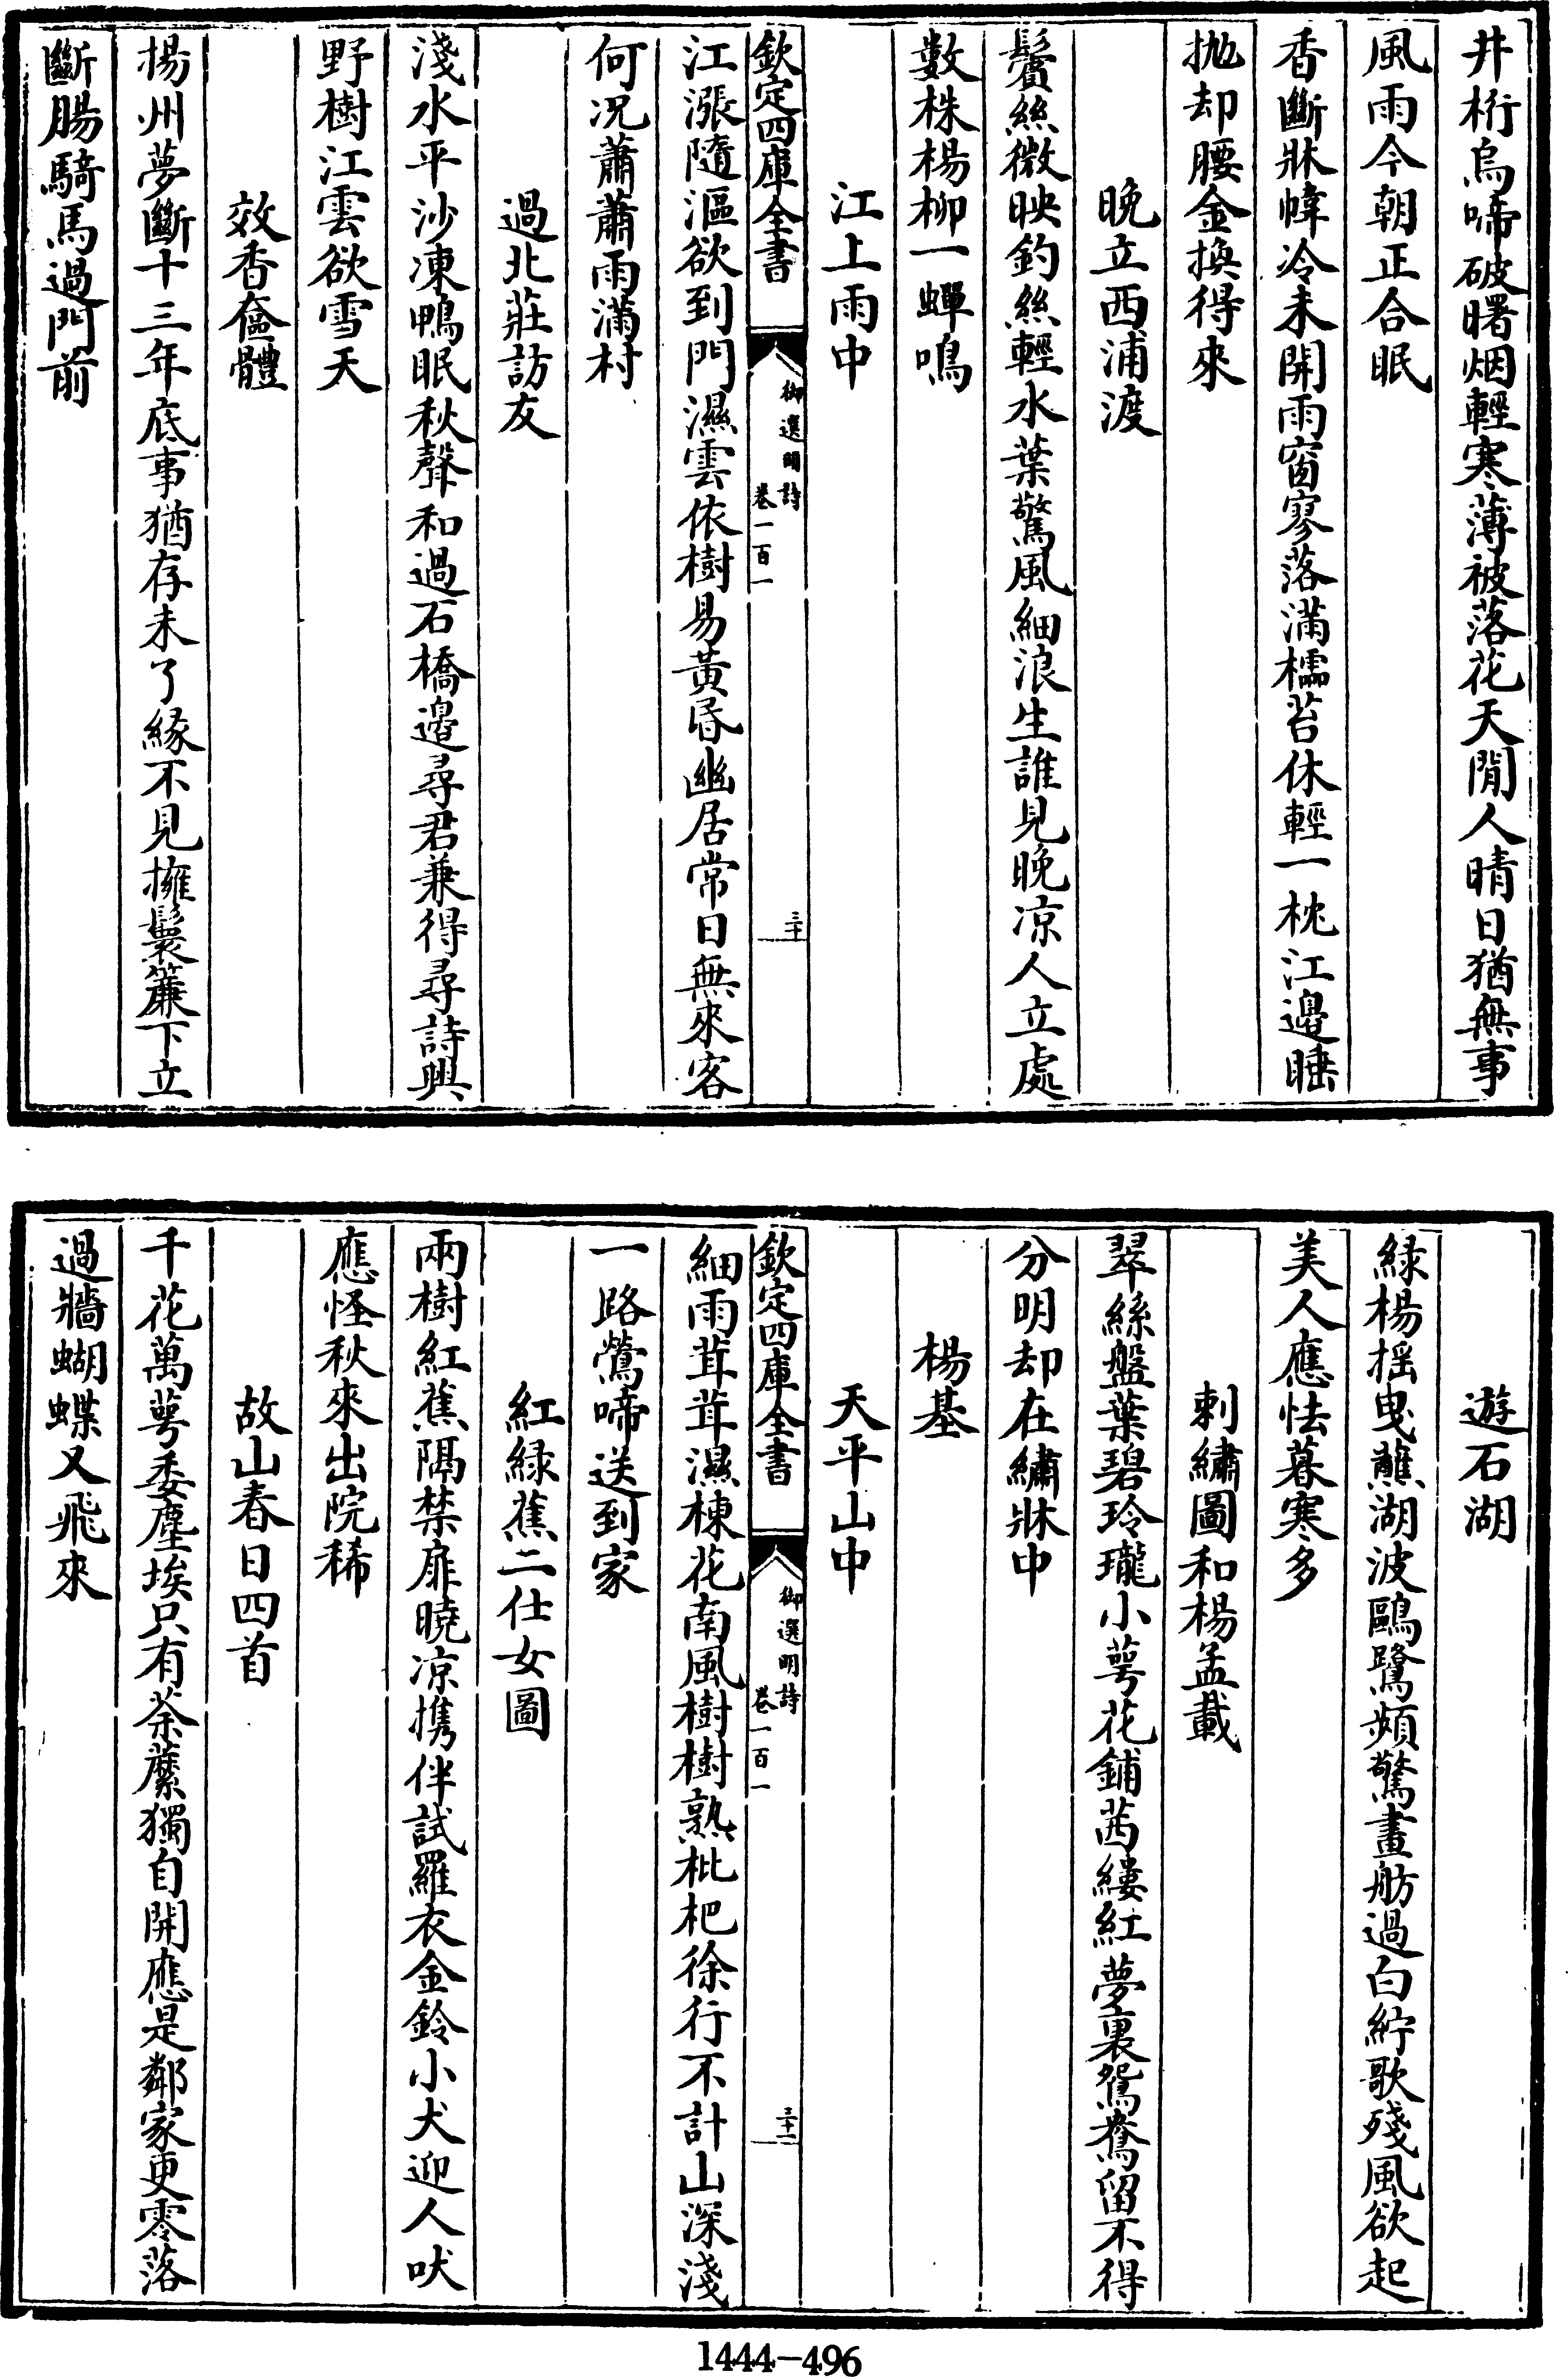 井桁烏啼破曙烟輕寒薄被落花天閒人晴日猶無事
風雨今朝正合眠
香斷牀幃冷未開雨窗寥落滿檽苔休輕一枕江邊睡
抛却腰金換得來
晚立西浦渡
鬢絲微映釣絲輕水葉驚風細浪生誰見晚凉人立處
數株楊柳一蟬鳴
江上雨中
欽定四庫全書
御選明詩
卷一百一
三十
江漲隨漚欲到門濕雲依樹易黃昏幽居常日無來客
何况蕭蕭雨滿村
過北莊訪友
淺水平沙凍鴨眠秋聲和過石橋邉尋君兼得尋詩興
野樹江雲欲雪天
效香奩體
揚州夢斷十三年底事猶存未了緣不見擁鬟簾下立
斷腸騎馬過門前
遊石湖
緑楊摇曳蘸湖波鷗鷺頻驚畫舫過白紵歌殘風欲起
美人應怯暮寒多
刺繡圖和楊孟載
翠絲盤葉碧玲瓏小萼花鋪茜縷紅夢裏鴛鴦留不得
分明却在繡牀中
楊基
天平山中
欽定四庫全書
御選明詩
卷一百一
三十一
細雨茸茸濕楝花南風樹樹熟枇杷徐行不計山深淺
一路鶯啼送到家
紅緑蕉二仕女圖
兩樹紅蕉隔禁扉曉凉携伴試羅衣金鈴小犬迎人吠
應怪秋來出院稀
故山春日四首
千花萬萼委塵埃只有荼蘼獨自開應是鄰家更零落
過牆蝴蝶又飛來
1444-496